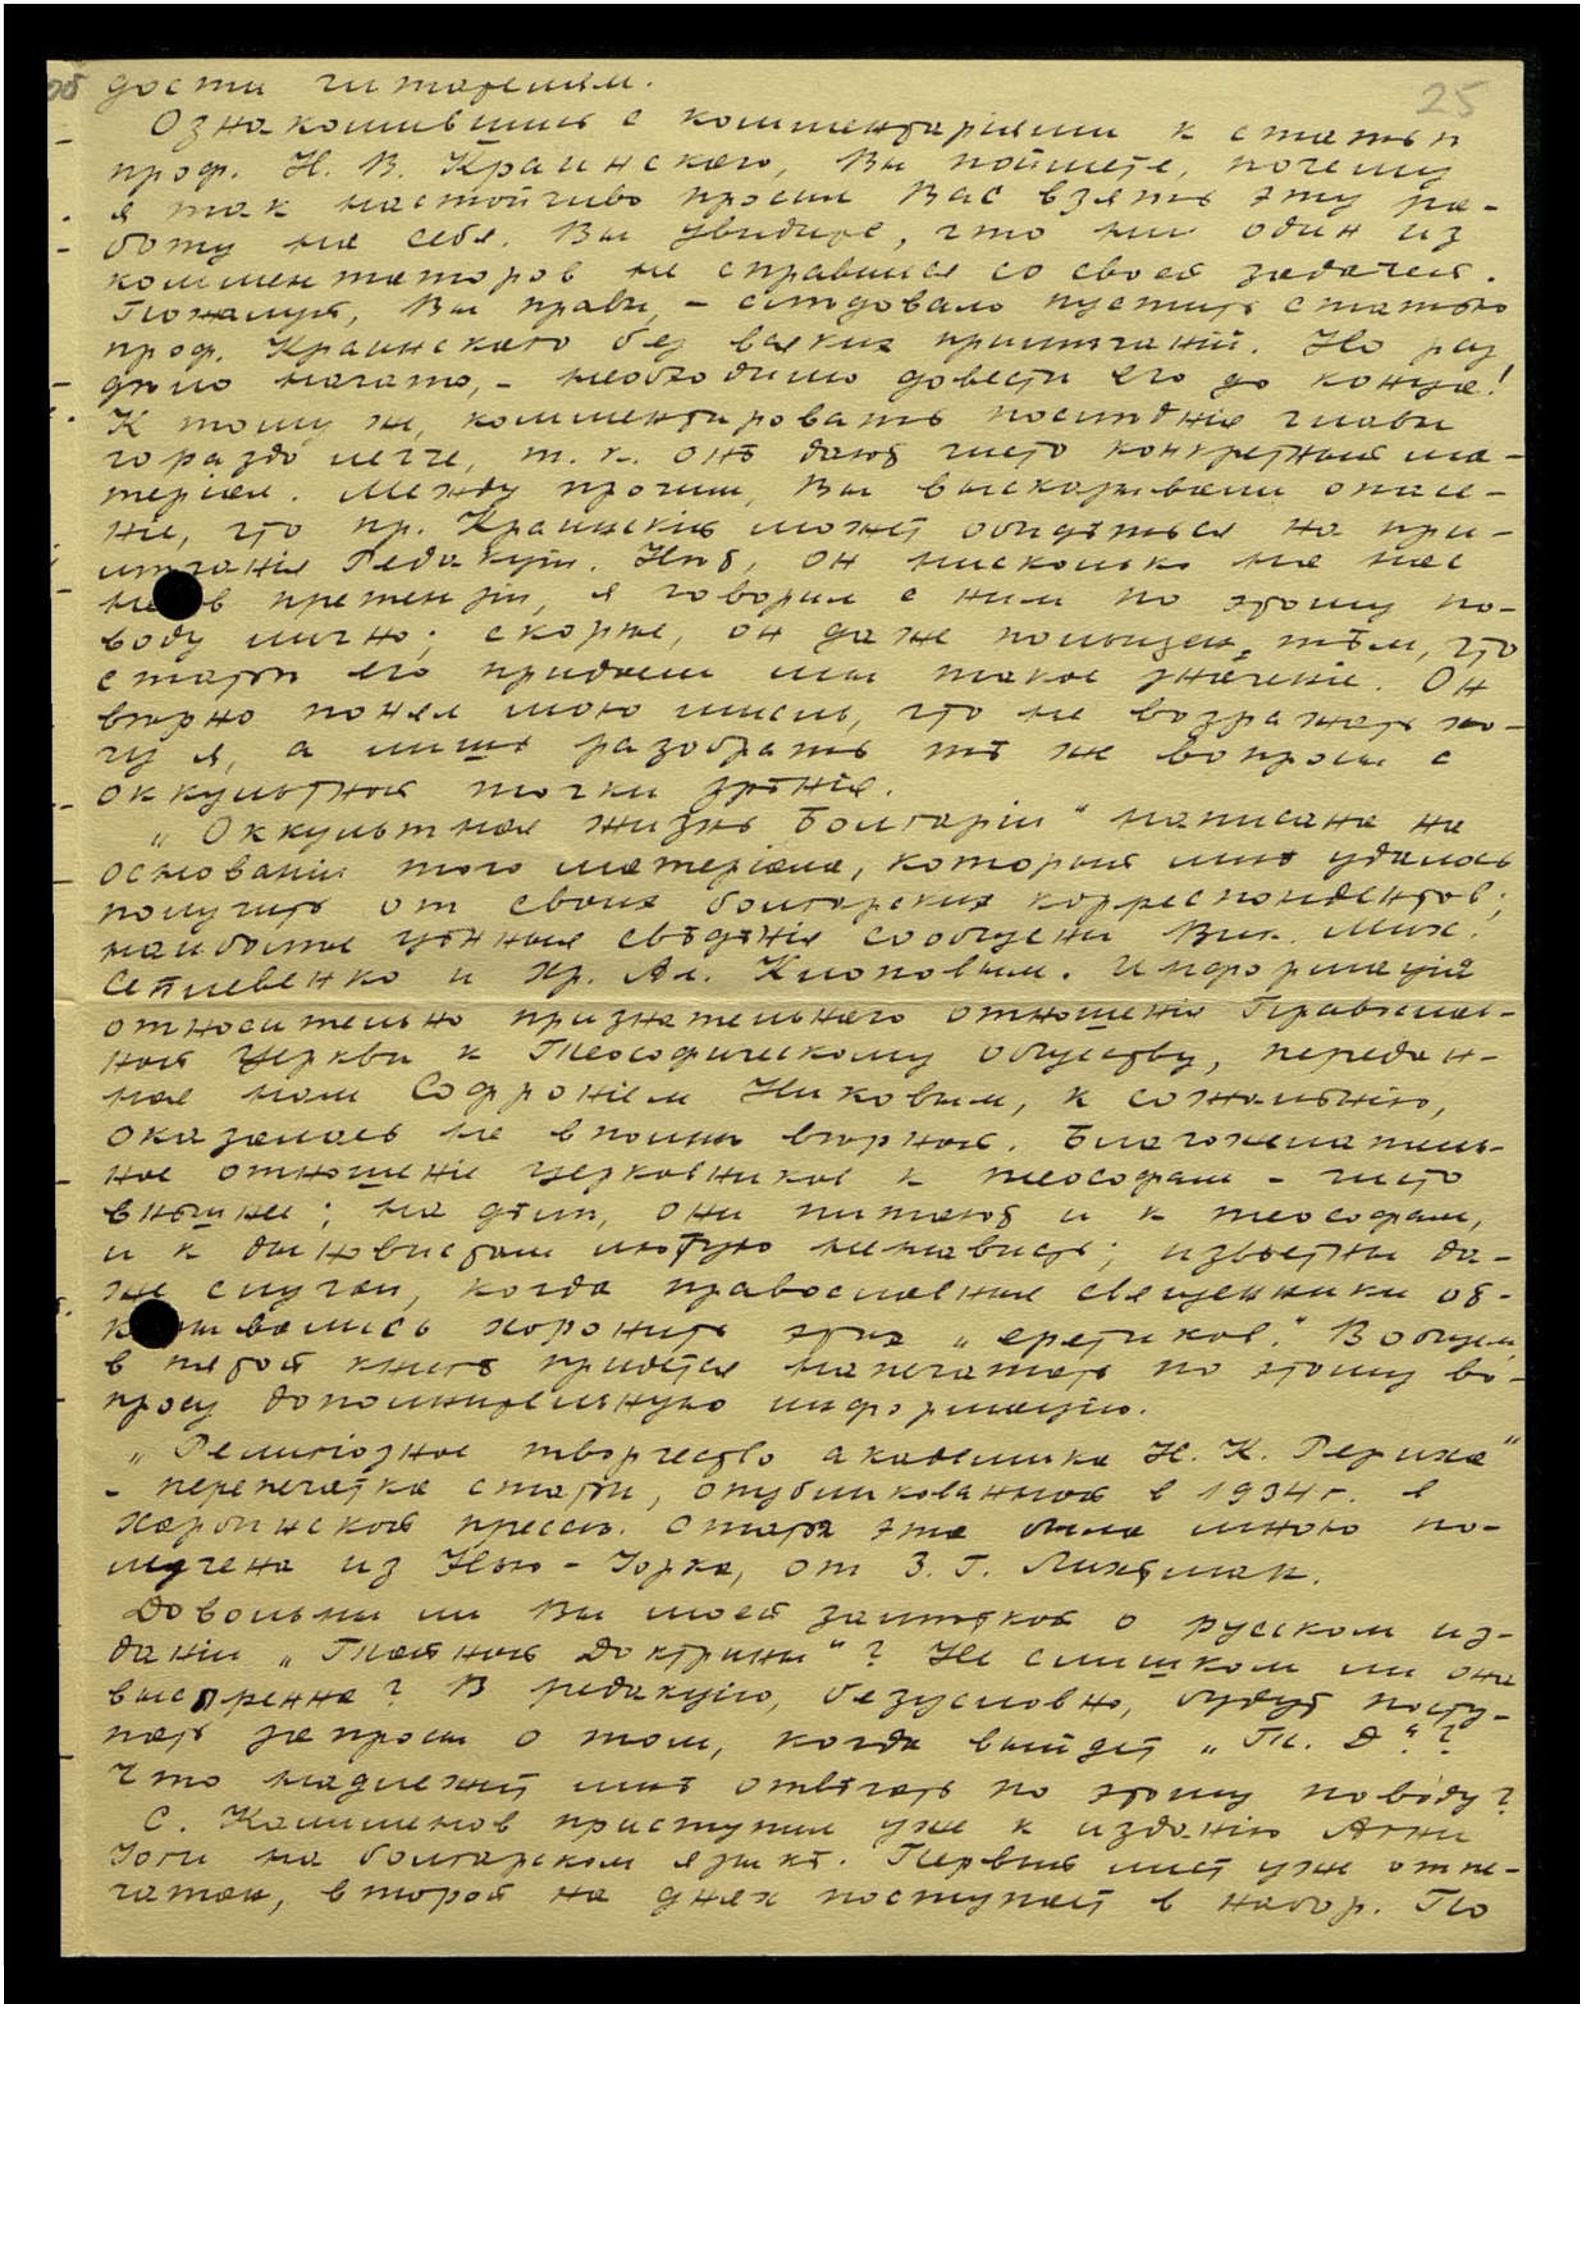 дости читателям.
25
Ознакомившись с комментаріями к статьѣ
проф. Н. В. Краинскаго, Вы поймете, почему
я так настойчиво просил Вас взять эту ра-
боту на себя. Вы увидите, что ни один из
комментаторов не справился со своей задачей.
Пожалуй, Вы правы, – слѣдовало пустить статью
проф. Краинскаго без всяких примѣчаній. Но раз
дѣло начато, – необходимо довести его до конца!
К тому же, комментировать послѣднія главы
гораздо легче, т. к. онѣ дают чисто конкретный ма-
теріал. Между прочим, Вы высказывали опасе-
ніе, что пр. Краинскій может обидѣться на при-
мѣчанія Редакціи. Нѣт, он нисколько на нас
не в претензіи, я говорил с ним по этому по-
воду лично; скорѣе, он даже польщен тѣм, что
статьѣ его придаем мы такое значеніе. Он
вѣрно понял мою мысль, что не возражать хо-
чу я, а лишь разобрать тѣ же вопросы с
оккультной точки зрѣнія.
„Оккультная жизнь Болгаріи" написана на
основаніи того матеріала, который мнѣ удалось
получить от своих болгарских корреспондентов;
наиболѣе цѣнныя свѣдѣнія сообщены Вик. Мих.
и Хр. Ал. Клоповым. Информація
относительно признательнаго отношенія Православ-
ной Церкви к Теософическому обществу, передан-
ная нам Софроніем Никовым, к сожалѣнію,
оказалась не вполнѣ вѣрной. Благожелатель-
ное отношеніе церковников к теософам – чисто
внѣшнее; на дѣлѣ, они питают и к теософам,
и к дыновистам лютую ненависть; извѣстны да-
же случаи, когда православные священники от-
казывались хоронить этих „еретиков". В общем,
в пятой книгѣ придется напечатать по этому во-
просу дополнительную информацію.
„Религіозное творчество академика Н. К. Рериха"
– перепечатка статьи, опубликованной в 1934 г. в
харбинской прессѣ. Статья эта была мною по-
лучена из Нью-Йорка, от З. Г. Лихтман.
Довольны ли Вы моей замѣткой о русском из-
даніи „Тайной Доктрины"? Не слишком ли она
выспренна? В редакцію, безусловно, будут посту-
пать запросы о том, когда выйдет „Т. Д."?
Что надлежит мнѣ отвѣчать по этому поводу?
С. Калименов приступил уже к изданію Агни
Йоги на болгарском языкѣ. Первый лист уже отпе-
чатан, второй на днях поступает в набор. По